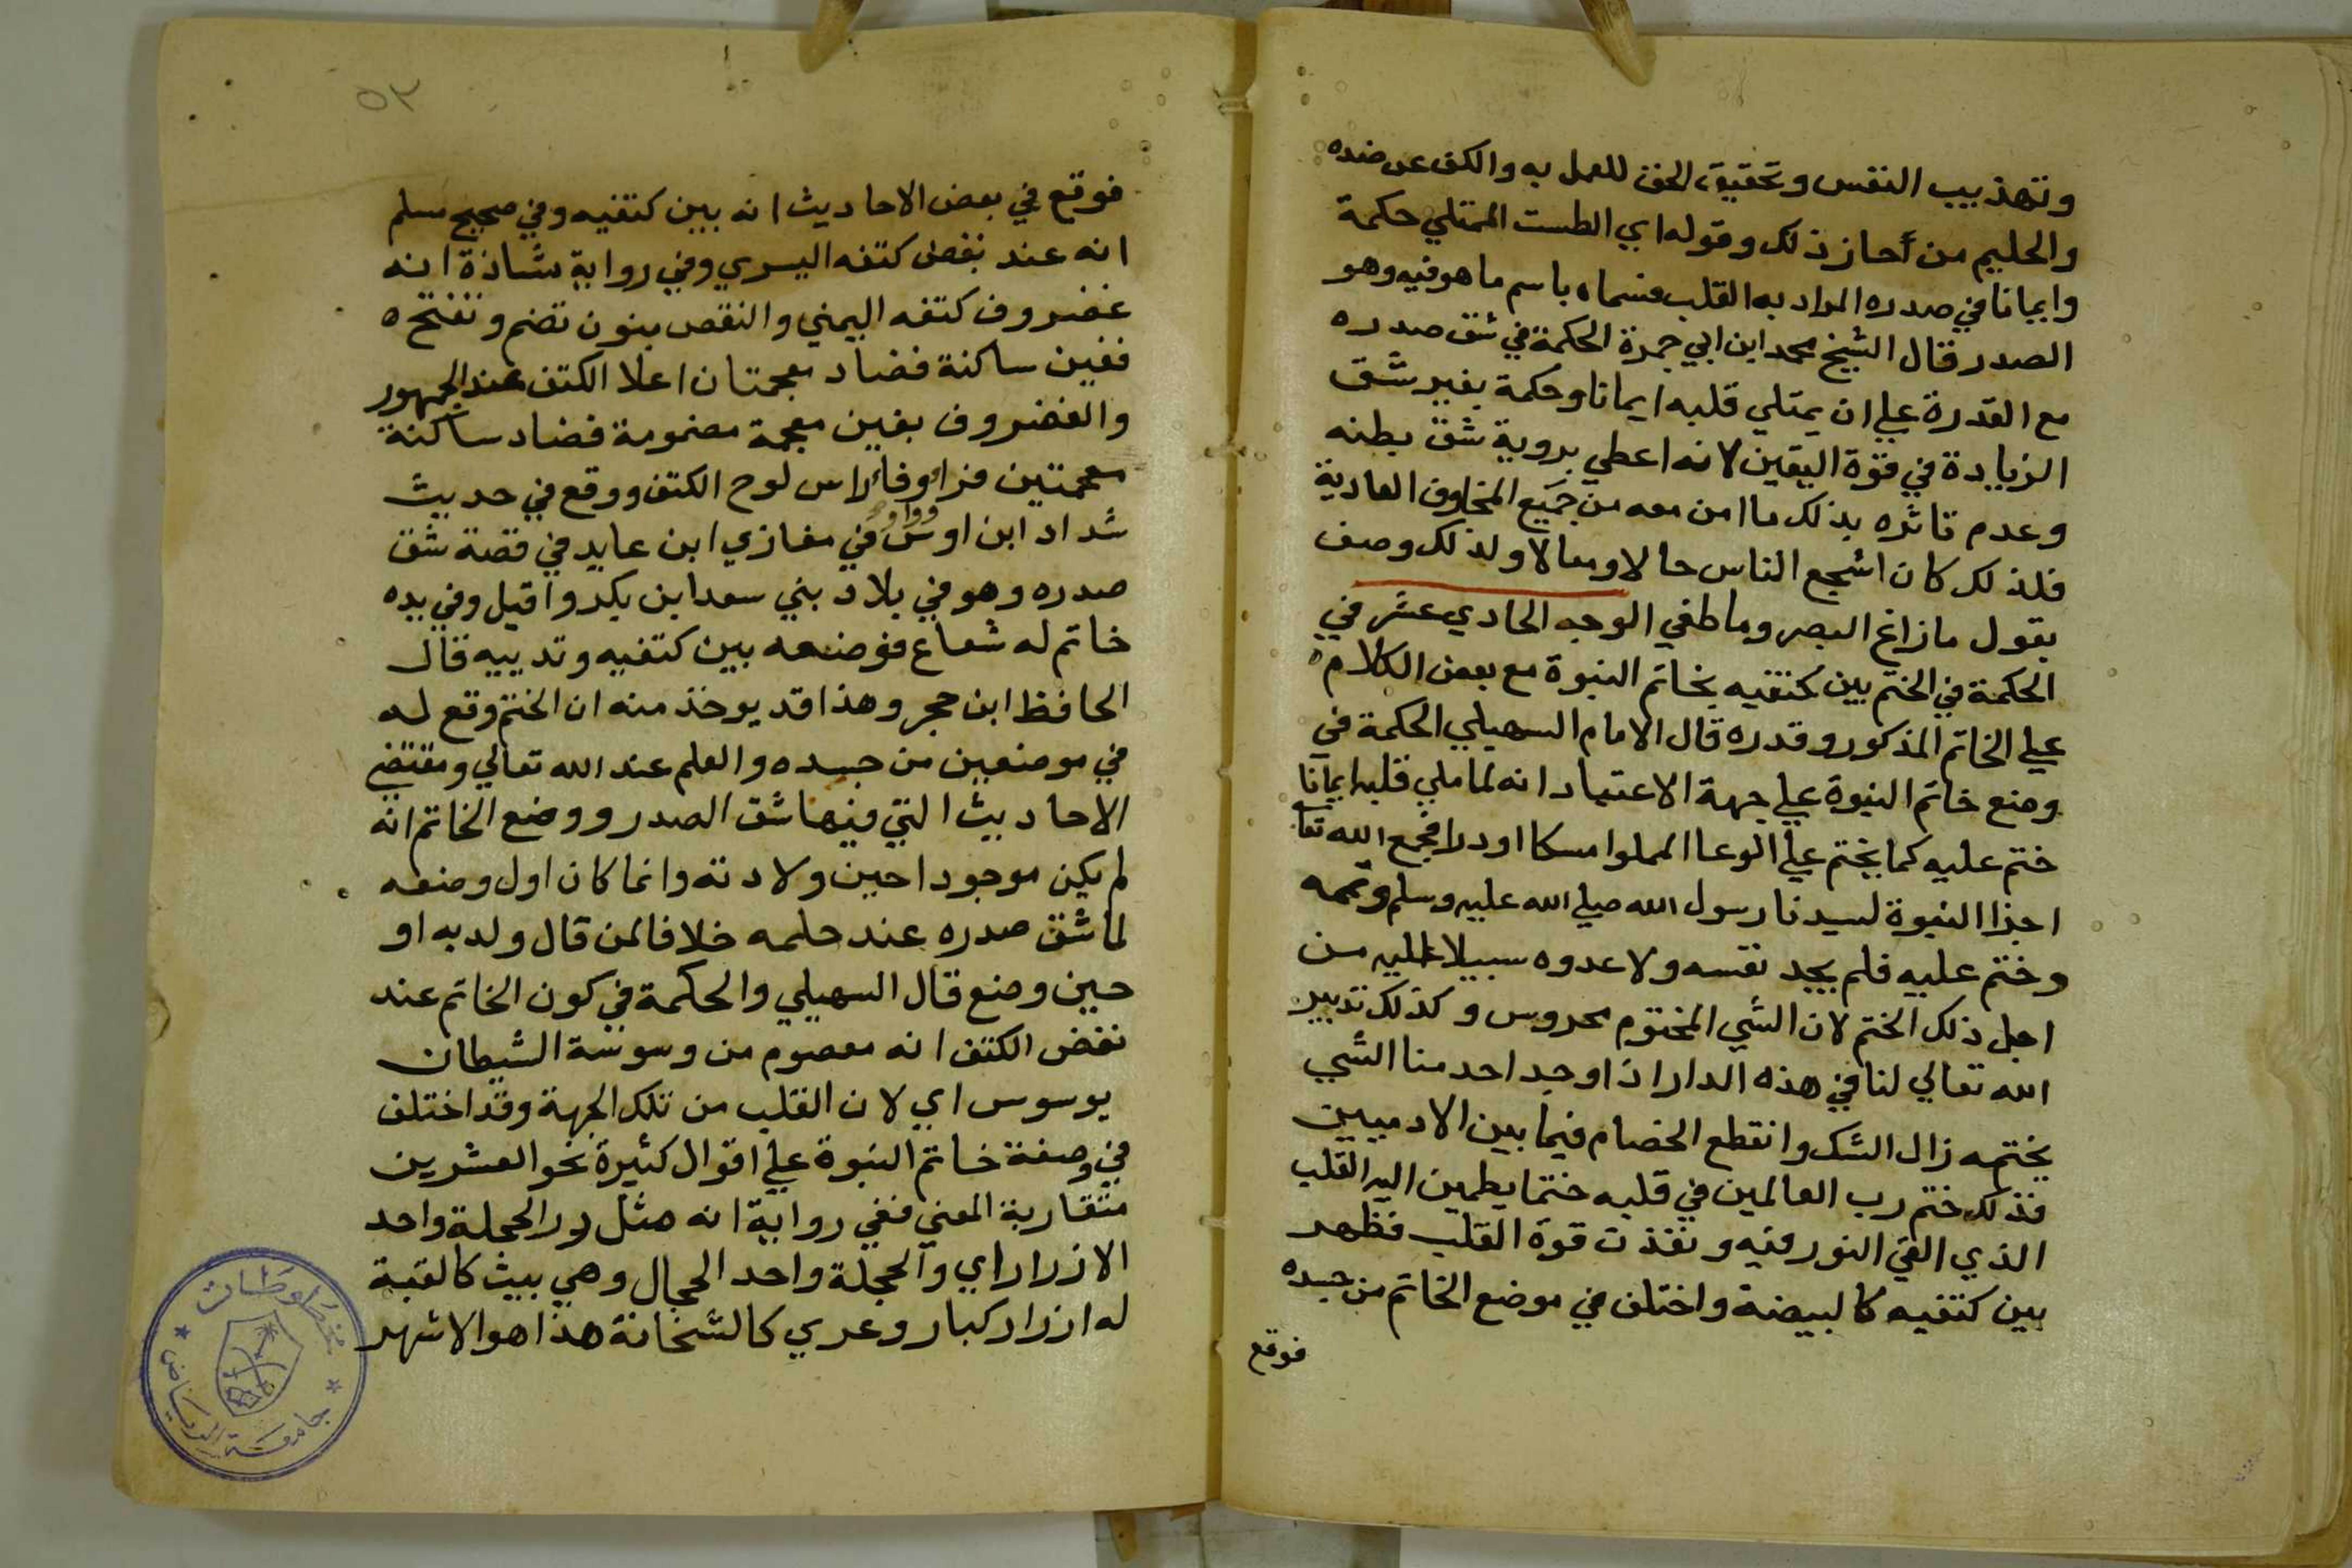 وتهذيب النفس وتحقيق الحق للعمل به والكف عن ضده
والحليم من أحاز ذلك وقوله اي الطست الممتلي حكمة
وايمانا في صدره المراد به القلب فسماه باسم ما هو فيه وهو
الصدر قال الشيخ محمد ابن ابي جمرة الحكمة في شق صدره
مع القدرة علي ان يمتلي قلبه ايمانا وحكمة بغير شق
الزيادة في قوة اليقين لانه اعطي بروية شق بطنه
وعدم تاثره بذلك ما امن معه من جميع المخاوف العادية
فلذلك كان اشجع الناس حالا ومعالا ولذلك وصف
بقول مازاغ البصر وما طغي الوجه الحادي عشر في
الحكمة في الختم بين كتفيه بخاتم النبوة مع بعض الكلام
علي الخاتم المذكور وقدره قال الامام السهيلي الحكمة في
وضع خاتم النبوة علي جهة الاعتبار انه لما ملي قلبه ايمانا
ختم عليه كما يختم علي الوعا المملوا مسكا او درا فجمع الله تعا
اجزا النبوة لسيدنا رسول الله صلي الله عليه وسلم وتممه
وختم عليه فلم يجد نفسه ولا عدوه سبيلا عليه من
اجل ذلك الختم لان الشي المختوم محروس وكذلك تدبير
الله تعالي لنا في هذه الدار اذا وجد احد منا الشي
بختمه زال الشك وانقطع الخصام فيما بين الادميين
فذلك ختم رب العالمين في قلبه ختما يطمين اليه القلب
الذي القي النور فيه ونفذت قوة القلب فظهر
بين كتفيه كالبيضة واختلف في موضع الخاتم من جسده
فوقع
٥٣
فوقع في بعض الاحاديث انه بين كتفيه وفي صحيح مسلم
انه عند نغض كتفه اليسري وفي رواية شاذة انه
غضروف كتفه اليمني والنغض بنون تضم وتفتح ه
فغين ساكنة فضاد معجمتان اعلا الكتف عند الجمهور
والغضروف بغين معجمة مضمومة فضاد ساكنة
معجمتين فرا وواو وفا راس لوح الكتف ووقع في حديث
شداد ابن اوس في مغازي ابن عايد في قصة شق
صدره وهو في بلاد بني سعد ابن بكر واقبل وفي يده
خاتم له شعاع فوضعه بين كتفيه وثدييه قال
الحافظ ابن حجر وهذا قد يوخذ منه ان الختم وقع له
في موضعين من جسده والعلم عند الله تعالي ومقتضي
الاحاديث التي فيها شق الصدر ووضع الخاتم انه
لم يكن موجودا حين ولادته وانما كان اول وضعه
لما شق صدره عند حلمه خلافا لمن قال ولد به او
حين وضع قال السهيلي والحكمة في كون الخاتم عند
نغض الكتف انه معصوم من وسوسة الشيطان
يوسوس اي لان القلب من تلك الجهة وقد اختلف
في وصفة خاتم النبوة علي اقوال كثيرة نحو العشرين
متقاربة المعني ففي رواية انه مثل زر الحجلة واحد
الازرار اي والحجلة واحد الحجال وهي بيت كالقبة
له ازرار كبار وعري كالشخانة هذا هو الاشهر
مخطوطات
جامعة الرياض